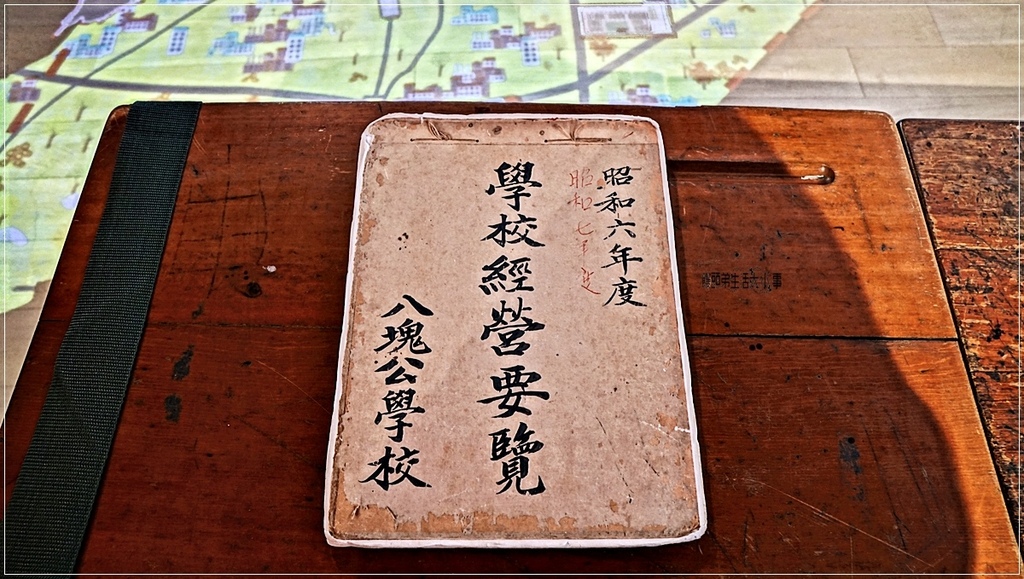 昭和六年度
昭和七年度
學校經營要覽
八塊公學校